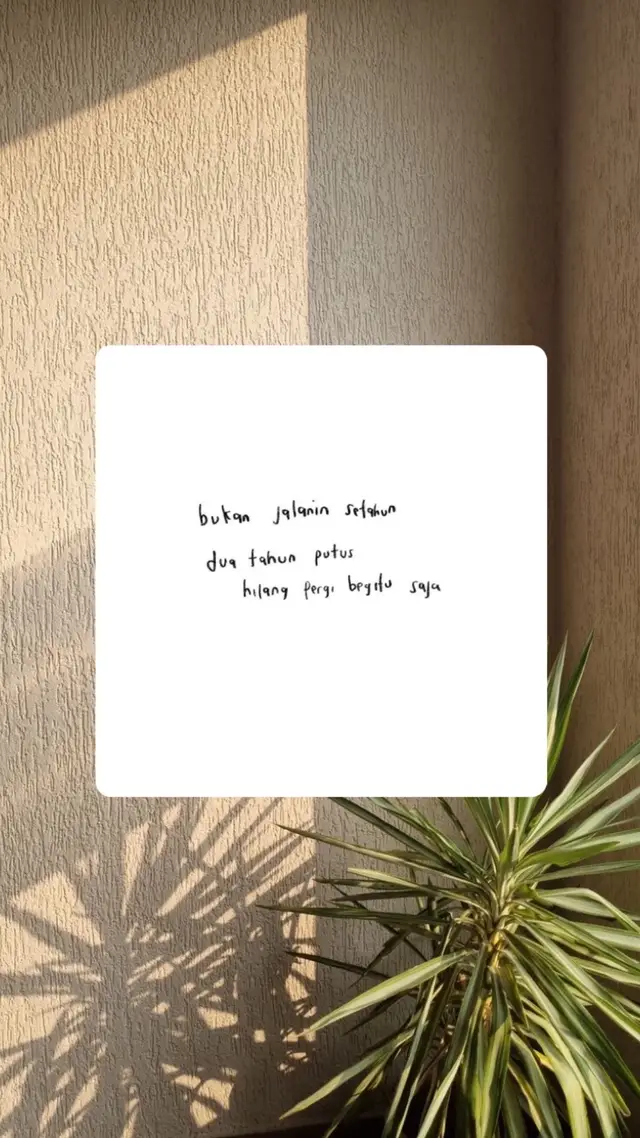 bukan jalanin setahun
dua tahun putus
hilang pergi begitu saja